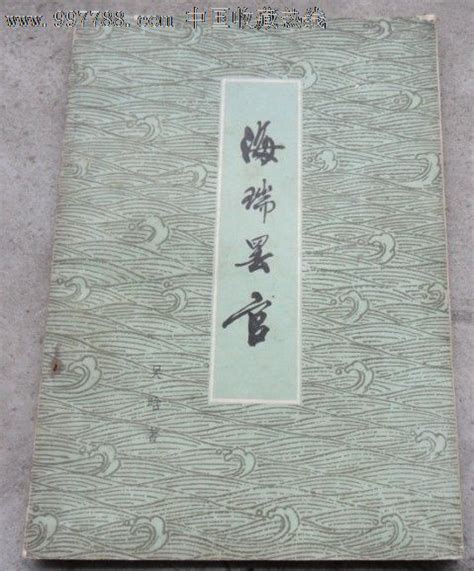 www.997788.com 中国收藏热线
海瑞罢官
吴晗著